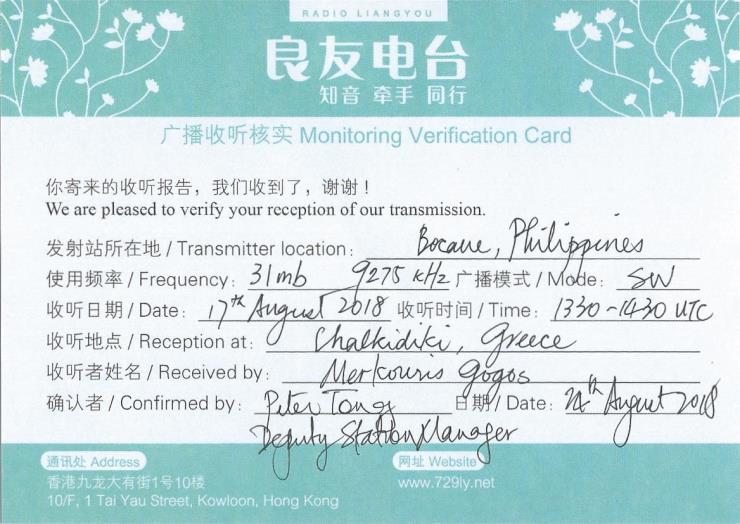 RADIO LIANGYOU
良友电台
知音 牵手 同行
广播收听核实 Monitoring Verification Card
你寄来的收听报告，我们收到了，谢谢！
We are pleased to verify your reception of our transmission.
发射站所在地 / Transmitter location: Bocaue, Philippines
使用频率 / Frequency: 31mb 9275 kHz 广播模式 / Mode: SW
收听日期 / Date: 17th August 2018 收听时间 / Time: 1330-1430 UTC
收听地点 / Reception at: Chalkidiki, Greece
收听者姓名 / Received by: Merkouris Gogos
确认者 / Confirmed by: Peter Tong 日期 / Date: 24th August 2018
Deputy Station Manager
通讯处 Address
网址 Website
香港九龙大有街1号10楼
www.729ly.net
10/F, 1 Tai Yau Street, Kowloon, Hong Kong